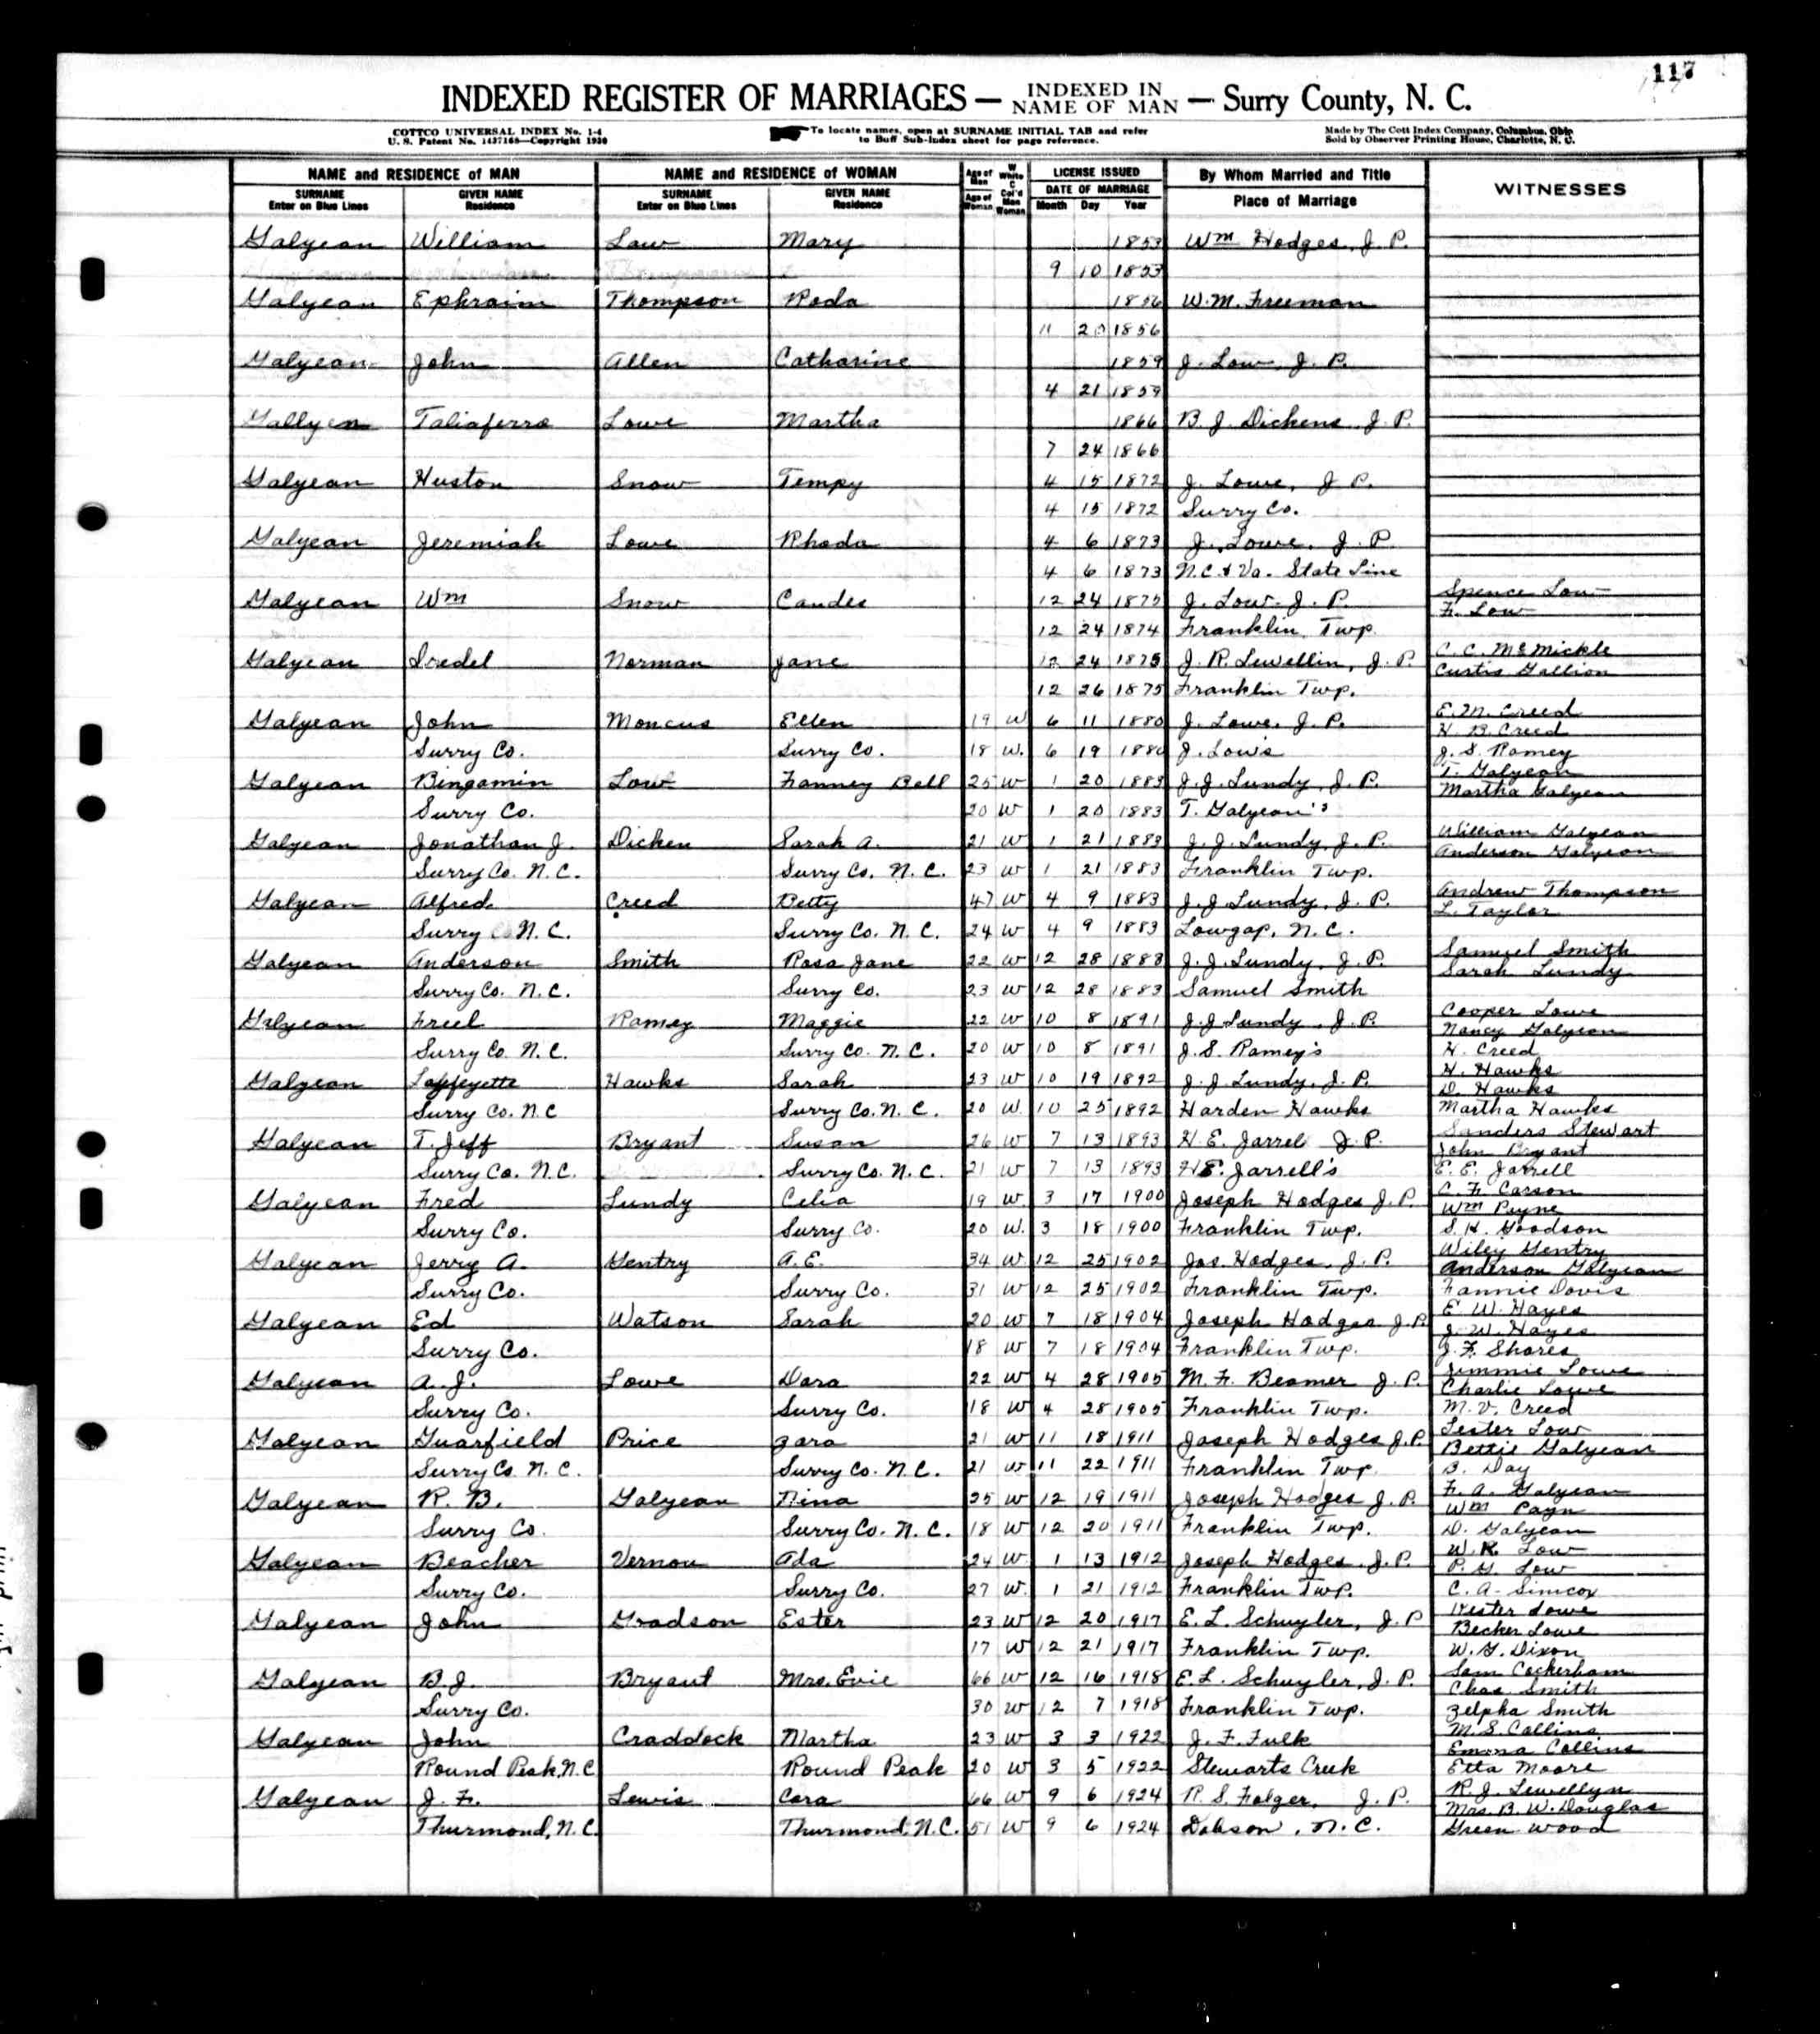 117
INDEXED REGISTER OF MARRIAGES — INDEXED IN NAME OF MAN — Surry County, N. C.
COTTCO UNIVERSAL INDEX No. 1-4
U. S. Patent No. 1437168—Copyright 1930
To locate names, open at SURNAME INITIAL TAB and refer
to Buff Sub-Index sheet for page reference.
Made by The Cott Index Company, Columbus, Ohio
Sold by Observer Printing House, Charlotte, N. C.
NAME and RESIDENCE of MAN NAME and RESIDENCE of WOMAN Age of Man W White C Col'd LICENSE ISSUED By Whom Married and Title WITNESSES
SURNAME Enter on Blue Lines GIVEN NAME Residence SURNAME Enter on Blue Lines GIVEN NAME Residence Age of Woman Man Woman DATE OF MARRIAGE Month Day Year Place of Marriage
Galyean William Law Mary 1853 Wm Hodges, J. P.
9 10 1853
Galyean Ephraim Thompson Roda 1856 W. M. Freeman
11 20 1856
Galyean John Allen Catharine 1859 J. Low, J. P.
4 21 1859
Gallyen Taliaferro Lowe Martha 1866 B. J. Dickens J. P.
7 24 1866
Galyean Huston Snow Tempy 4 15 1872 J. Lowe, J P.
4 15 1872 Surry Co.
Galyean Jeremiah Lowe Rhoda 4 6 1873 J. Lowe, J. P.
4 6 1873 N.C. & Va. State Line
Galyean Wm Snow Candes 12 24 1875 J. Low. J. P. Spence Low
F. Low
12 24 1874 Franklin Twp.
Galyean Iredel Norman Jane 12 24 1875 J. R. Lewellin, J. P. C. C. McMickle
Curtis Gallion
12 26 1875 Franklin Twp.
Galyean John Moncus Ellen 19 W 6 11 1880 J. Lowe, J. P. E. M. Creed
H. B. Creed
Surry Co. Surry Co. 18 W. 6 19 1880 J. Low's J. S. Ramey
Galyean Bingamin Low Fanney Bell 25 W 1 20 1883 J. J. Lundy, J. P. T. Galyean
Martha Galyean
Surry Co. 20 W 1 20 1883 T. Galyean's
Galyean Jonathan J. Dicken Sarah A. 21 W 1 21 1883 J. J. Lundy, J. P. William Galyean
Anderson Galyean
Surry Co. N. C. Surry Co. N. C. 23 W 1 21 1883 Franklin Twp.
Galyean Alfred Creed Betty 47 W 4 9 1883 J. J Lundy, J. P. Andrew Thompson
L. Taylor
Surry Co N. C. Surry Co. N. C. 24 W 4 9 1883 Lowgap, N. C.
Galyean Anderson Smith Rosa Jane 22 W 12 28 1883 J. J. Lundy, J. P. Samuel Smith
Sarah Lundy
Surry Co. N. C. Surry Co. 23 W 12 28 1883 Samuel Smith
Galyean Freel Ramey Maggie 22 W 10 8 1891 J. J Lundy, J. P. Cooper Lowe
Nancy Galyean
Surry Co. N. C. Surry Co. N. C. 20 W 10 8 1891 J. S. Ramey's H. Creed
Galyean Laffeyette Hawks Sarah 23 W 10 19 1892 J. J. Lundy, J. P. H. Hawks
D. Hawks
Surry Co. N. C Surry Co. N. C. 20 W. 10 25 1892 Harden Hawks Martha Hawks
Galyean T. Jeff Bryant Susan 26 W 7 13 1893 H. E. Jarrel J. P. Sanders Stewart
John Bryant
Surry Co. N. C. Surry Co. N. C. 21 W 7 13 1893 H E. Jarrell's E. E. Jarrell
Galyean Fred Lundy Celia 19 W. 3 17 1900 Joseph Hodges J. P. C. F. Carson
Wm Payne
Surry Co. Surry Co. 20 W. 3 18 1900 Franklin Twp. S. H. Goodson
Galyean Jerry A. Gentry A. E. 34 W 12 25 1902 Jos. Hodges, J. P. Wiley Gentry
Anderson Galyean
Surry Co. Surry Co. 31 W 12 25 1902 Franklin Twp. Fannie Davis
Galyean Ed Watson Sarah 20 W 7 18 1904 Joseph Hodges J. P. E. W. Hayes
J. W. Hayes
Surry Co. 18 W 7 18 1904 Franklin Twp. J. F. Shores
Galyean A. J. Lowe Dora 22 W 4 28 1905 M. F. Beamer J. P. Jimmie Lowe
Charlie Lowe
Surry Co. Surry Co. 18 W 4 28 1905 Franklin Twp. M. V. Creed
Galyean Guarfield Price Zara 21 W 11 18 1911 Joseph Hodges J. P. Lester Low
Bettie Galyean
Surry Co. N. C. Surry Co. N. C. 21 W 11 22 1911 Franklin Twp B. Day
Galyean R. B. Galyean Nina 25 W 12 19 1911 Joseph Hodges J. P. F. A. Galyean
Wm Payn
Surry Co. Surry Co. N. C. 18 W 12 20 1911 Franklin Twp. D. Galyean
Galyean Beacher Vernon Ada 24 W. 1 13 1912 Joseph Hodges, J. P. W. R. Low
P. G. Low
Surry Co. Surry Co. 27 W. 1 21 1912 Franklin Twp. C. A. Simcox
Galyean John Gradson Ester 23 W 12 20 1917 E. L. Schuyler, J. P Hester Lowe
Becker Lowe
17 W 12 21 1917 Franklin Twp. W. G. Dixon
Galyean B. J. Bryant Mrs. Evie 66 W 12 16 1918 E. L. Schuyler, J. P. Sam Cockerham
Chas Smith
Surry Co. 30 W 12 7 1918 Franklin Twp. Zelpha Smith
Galyean John Craddock Martha 23 W 3 3 1922 J. F. Fulk M. S. Collins
Emma Collins
Round Peak, N. C Round Peak 20 W 3 5 1922 Stewarts Creek Etta Moore
Galyean J. F. Lewis Cora 66 W 9 6 1924 R. S. Folger, J. P. R. J. Lewellyn
Mrs. B. W. Douglas
Thurmond, N. C. Thurmond, N. C. 51 W 9 6 1924 Dobson, N. C. Green Wood